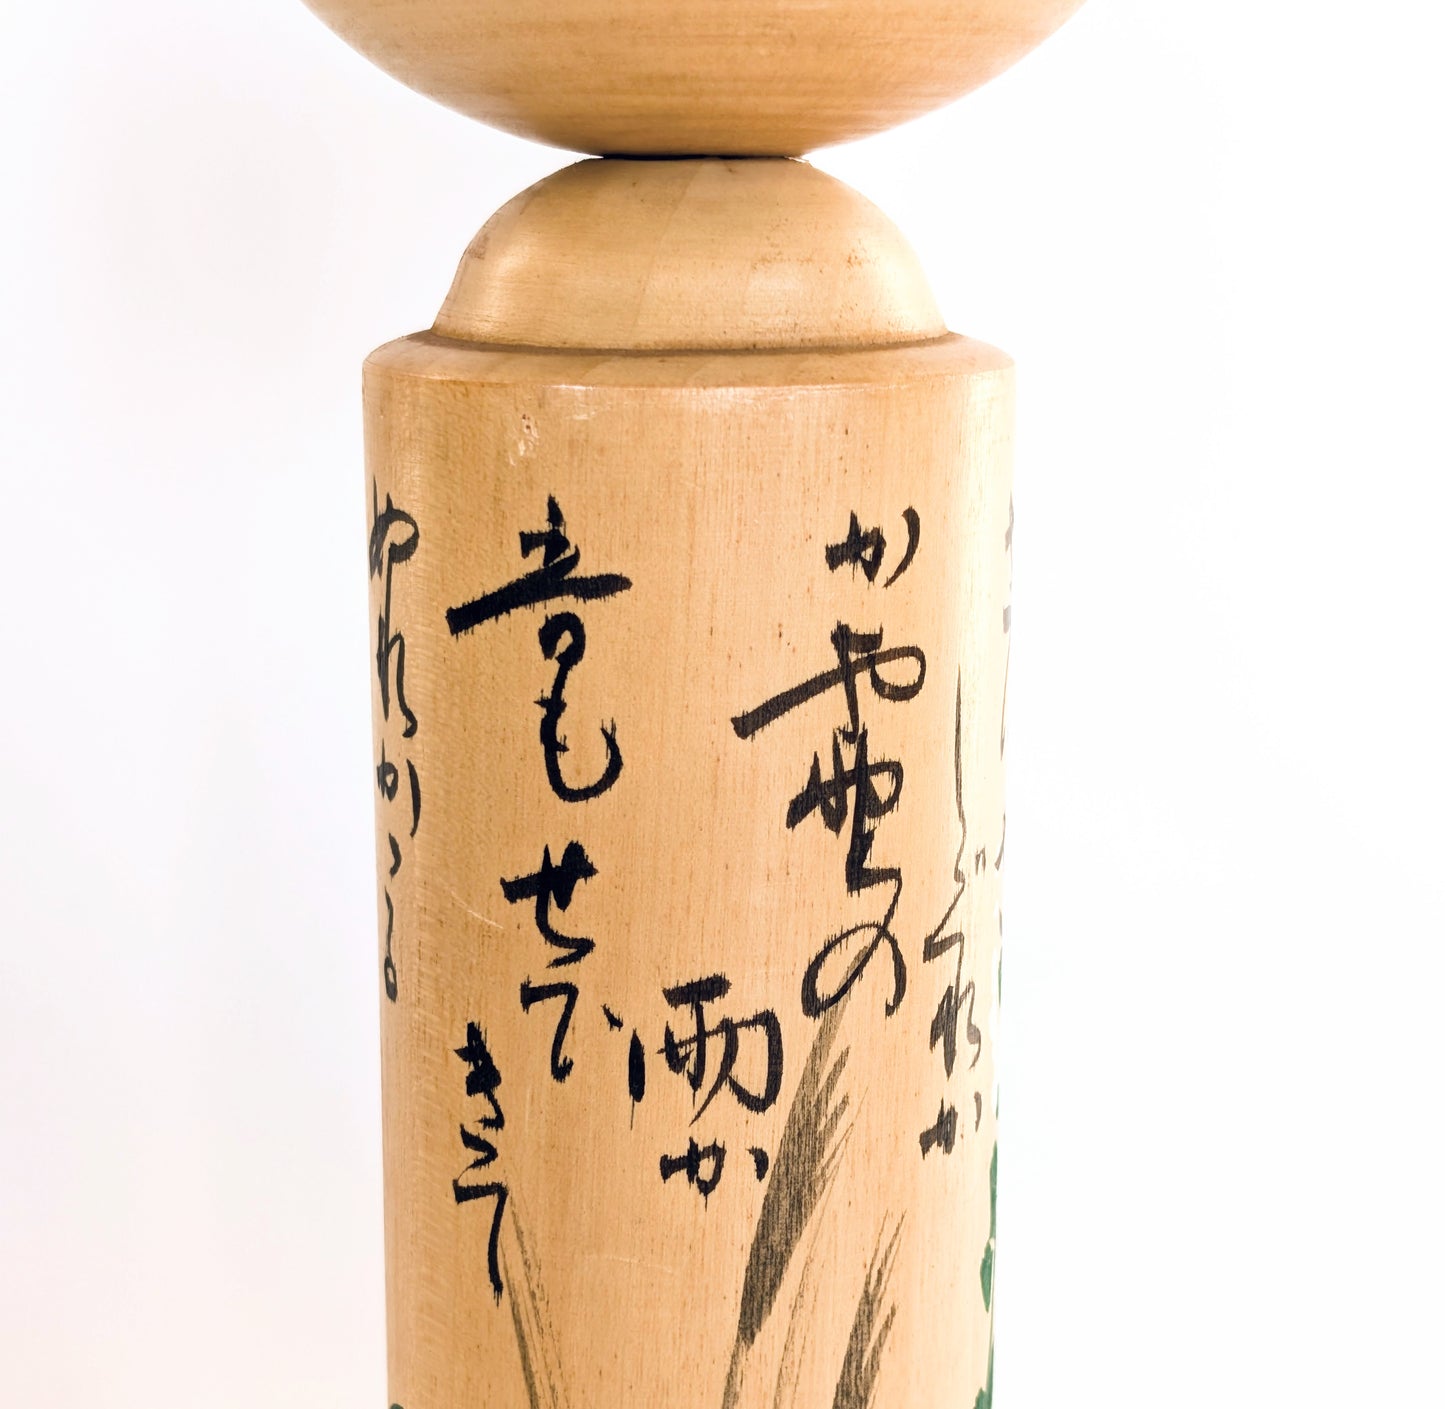 しぐれか
かや野の
雨か
音もせで
きて
ぬれかゝる